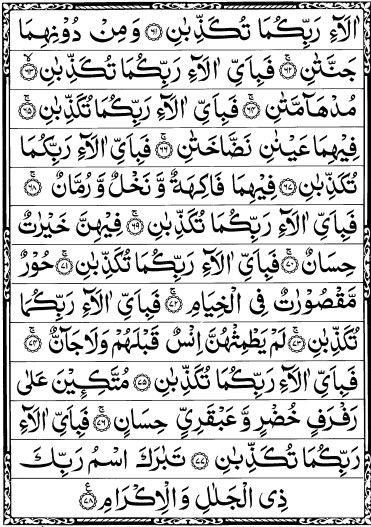 اٰلَآءِ رَبِّكُمَا تُكَذِّبٰنِ ﴿٦١﴾ وَمِنْ دُوْنِهِمَا
جَنَّتٰنِ ﴿٦٢﴾ فَبِاَيِّ اٰلَآءِ رَبِّكُمَا تُكَذِّبٰنِ ﴿٦٣﴾
مُدْهَآمَّتٰنِ ﴿٦٤﴾ فَبِاَيِّ اٰلَآءِ رَبِّكُمَا تُكَذِّبٰنِ ﴿٦٥﴾
فِيْهِمَا عَيْنٰنِ نَضَّاخَتٰنِ ﴿٦٦﴾ فَبِاَيِّ اٰلَآءِ رَبِّكُمَا
تُكَذِّبٰنِ ﴿٦٧﴾ فِيْهِمَا فَاكِهَةٌ وَّ نَخْلٌ وَّ رُمَّانٌ ﴿٦٨﴾
فَبِاَيِّ اٰلَآءِ رَبِّكُمَا تُكَذِّبٰنِ ﴿٦٩﴾ فِيْهِنَّ خَيْرٰتٌ
حِسَانٌ ﴿٧٠﴾ فَبِاَيِّ اٰلَآءِ رَبِّكُمَا تُكَذِّبٰنِ ﴿٧١﴾ حُوْرٌ
مَّقْصُوْرٰتٌ فِي الْخِيَامِ ﴿٧٢﴾ فَبِاَيِّ اٰلَآءِ رَبِّكُمَا
تُكَذِّبٰنِ ﴿٧٣﴾ لَمْ يَطْمِثْهُنَّ اِنْسٌ قَبْلَهُمْ وَلَا جَآنٌّ ﴿٧٤﴾
فَبِاَيِّ اٰلَآءِ رَبِّكُمَا تُكَذِّبٰنِ ﴿٧٥﴾ مُتَّكِـِٕيْنَ عَلٰى
رَفْرَفٍ خُضْرٍ وَّ عَبْقَرِيٍّ حِسَانٍ ﴿٧٦﴾ فَبِاَيِّ اٰلَآءِ
رَبِّكُمَا تُكَذِّبٰنِ ﴿٧٧﴾ تَبٰرَكَ اسْمُ رَبِّكَ
ذِي الْجَلٰلِ وَ الْاِكْرَامِ ﴿٧٨﴾